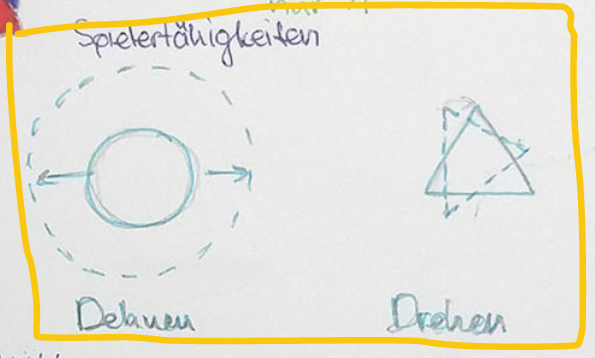 Spielerfähigkeiten
Dehnen
Drehen